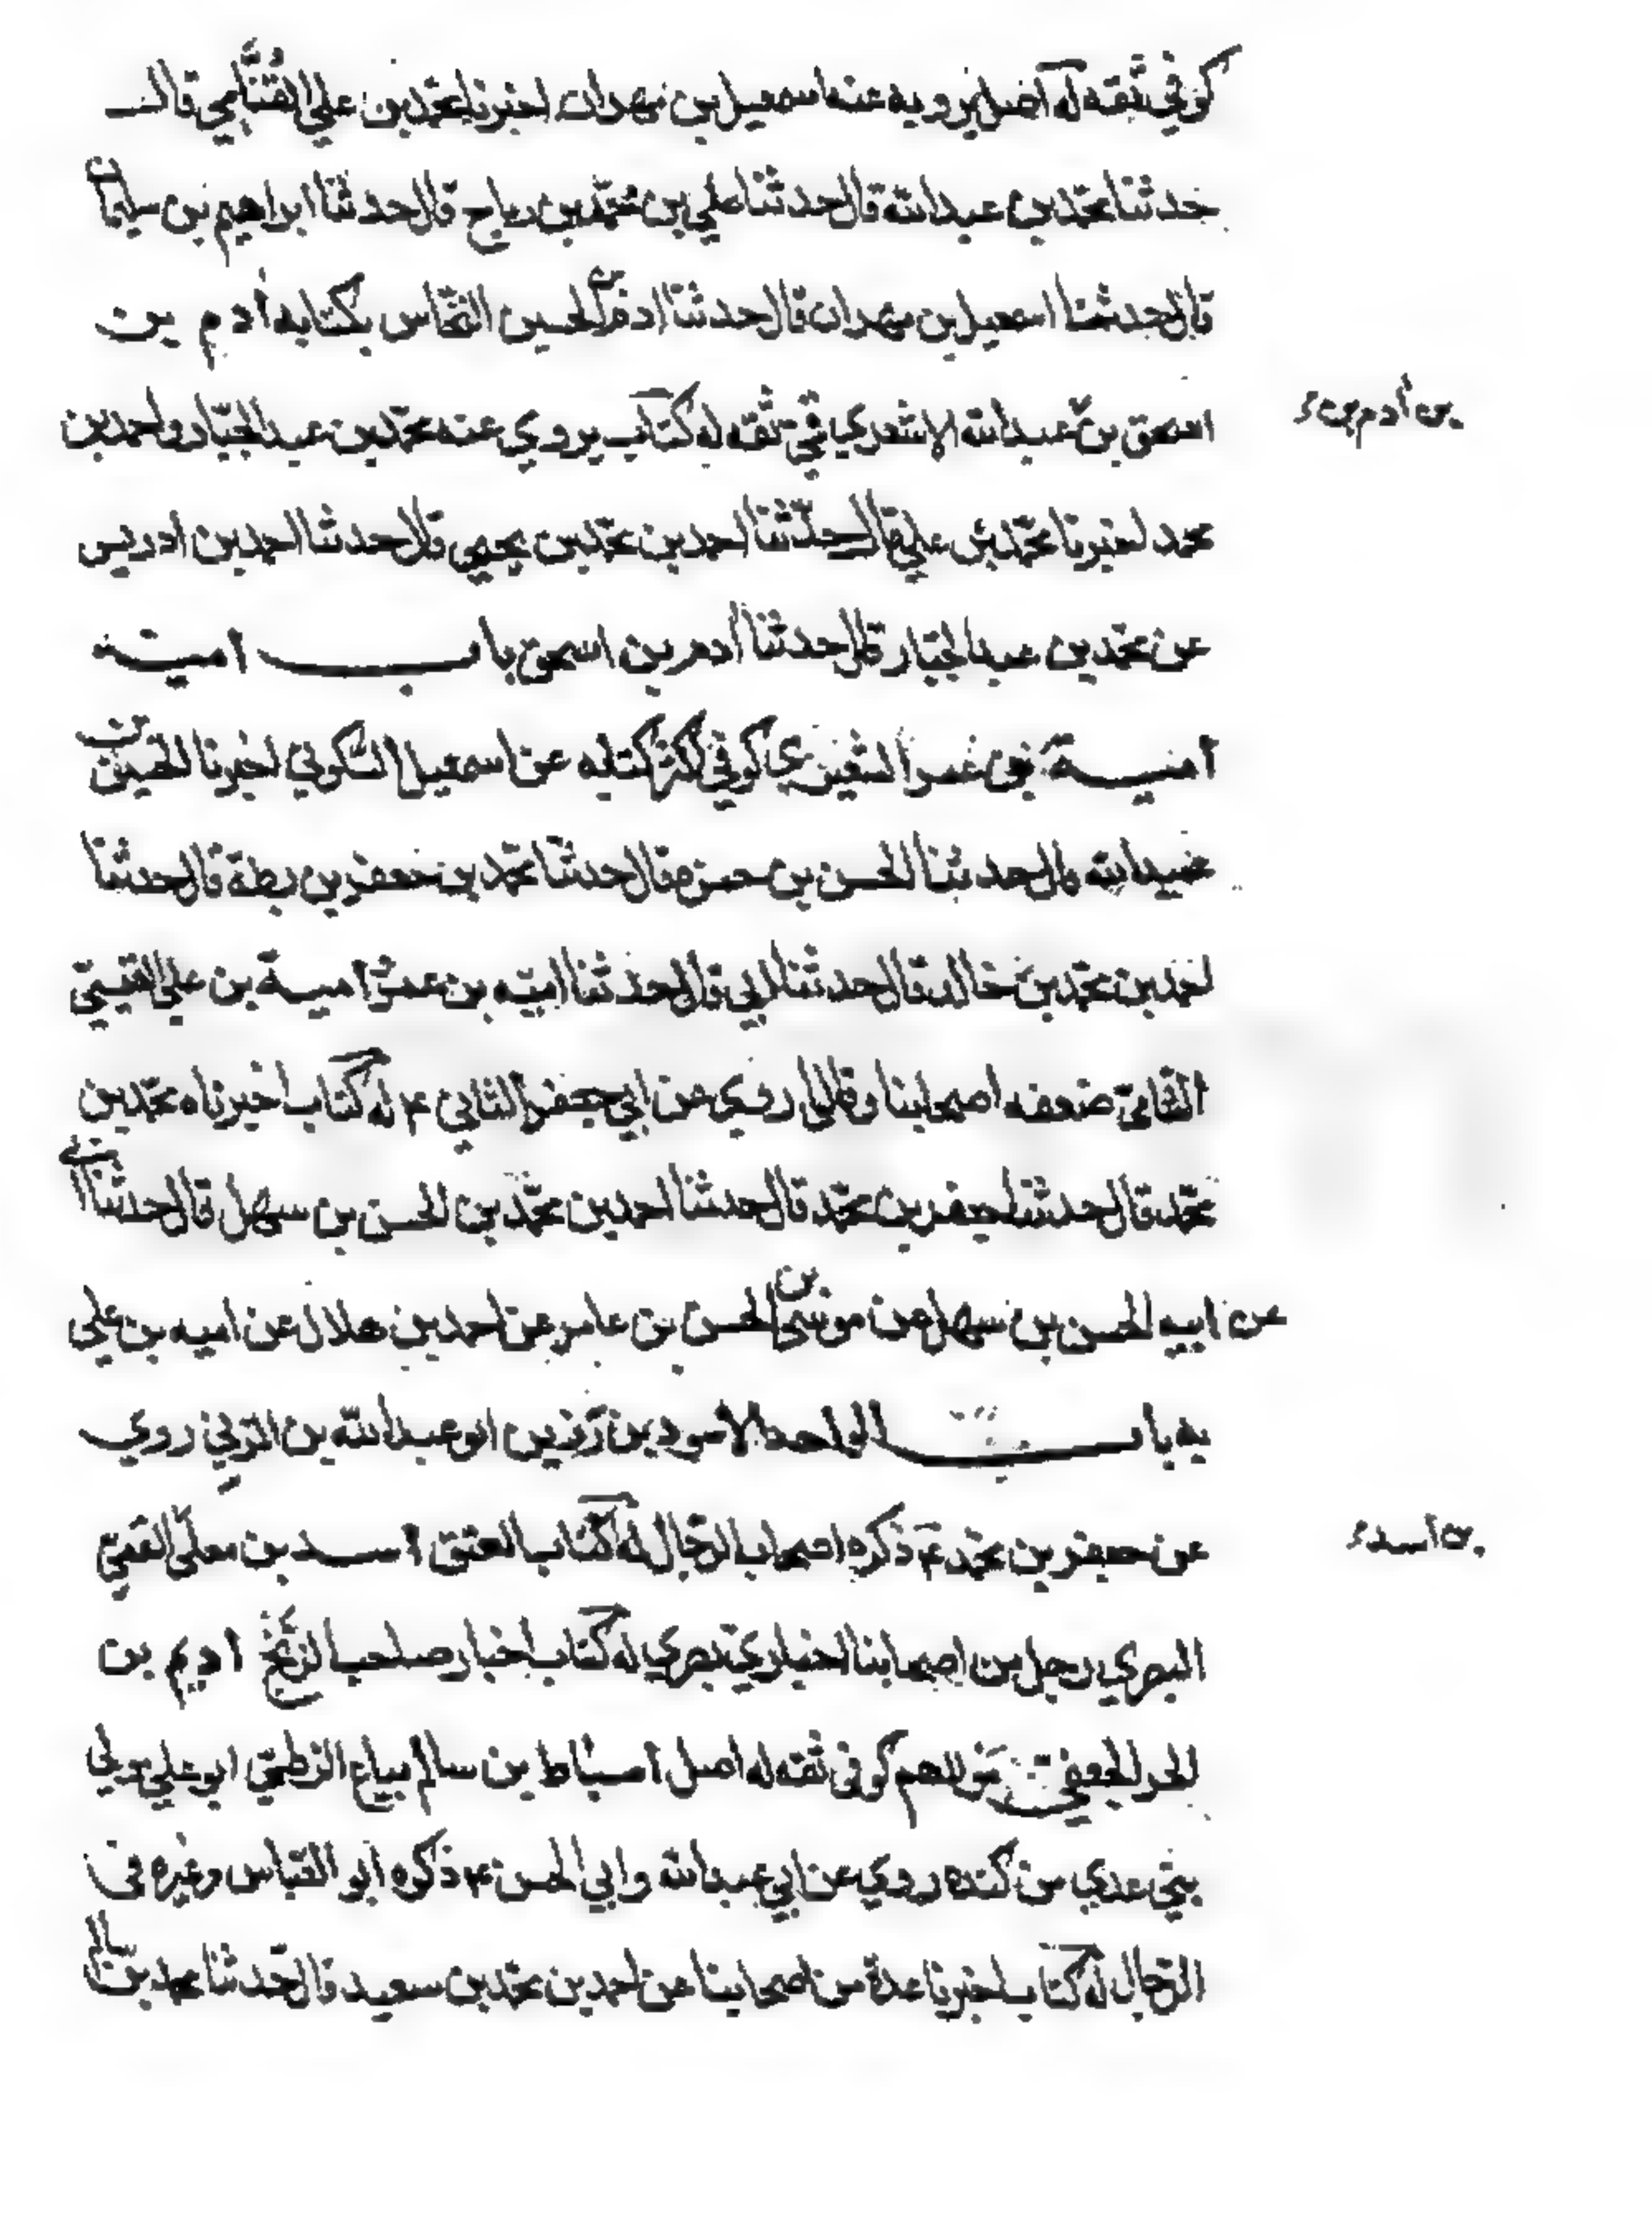 كوفي ثقه له اصل يرويه عنه اسمعيل بن مهران اخبرنا محمد بن علي القناني قال
حدثنا محمد بن عبدالله قال حدثنا علي بن محمد بن رباح قال حدثنا ابراهيم بن سليمان
قال حدثنا اسمعيل بن مهران قال حدثنا ادم بن الحسين النخاس بكتابه ادم بن
اسحق بن عبدالله الاشعري قمي ثقه له كتاب يروي عنه محمد بن عبدالجبار واحمد بن
بن ادم بن
محمد اخبرنا محمد بن علي قال حدثنا احمد بن محمد بن يحيى قال حدثنا احمد بن ادريس
عن محمد بن عبدالجبار قال حدثنا ادم بن اسحق باب امية
امية بن عمرو الشعيري كوفي اكثر كتابه عن اسمعيل السكوني اخبرنا الحسين بن
عبيدالله قال حدثنا الحسن بن حمزه قال حدثنا محمد بن جعفر بن بطة قال حدثنا
احمد بن محمد بن خالد قال حدثنا ابي قال حدثنا اميه بن عمرو امية بن علي القيسي
الشامي ضعفه اصحابنا وقالوا روى عن ابي جعفر الثاني ع له كتاب اخبرناه محمد بن
محمد قال حدثنا جعفر بن محمد قال حدثنا احمد بن محمد بن الحسن بن سهل قال حدثنا ابي
عن ابيه الحسن بن سهل عن موسى بن الحسن بن عامر عن احمد بن هلال عن اميه بن علي
به باب الواحد الاسود بن رزين ابو عبدالله بن المزني روي
عن جعفر بن محمد ع ذكره اصحاب الرجال له كتاب العتق اسد بن معلى العمي
بن اسد
البصري رجل من اصحابنا اخباري بصري له كتاب اخبار صاحب الزنج اديم بن
الحر الجعفي مولاهم كوفي ثقه له اصل اسباط بن سالم بياع الزطي ابو علي مولي
بني عدي من كنده روي عن ابي عبدالله وابي الحسن ع ذكره ابو العباس وغيره في
الرجال له كتاب اخبرنا عدة من اصحابنا عن احمد بن محمد بن سعيد قال حدثنا محمد بن سالم